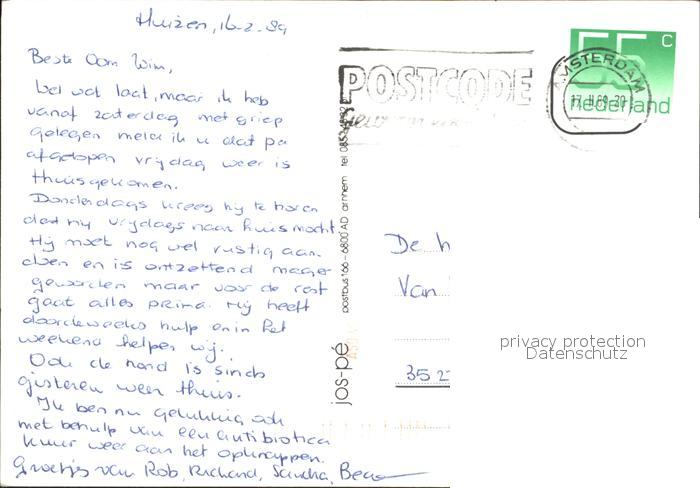 Huizen, 16-2-'89
Beste Oom Wim,
Wel wat laat, maar ik heb
vanaf zaterdag met griep
gelegen meld ik u dat pa
afgelopen vrijdag weer is
thuisgekomen.
Donderdags kreeg hij te horen
dat hij vrijdags naar huis mocht.
Hij moet nog wel rustig aan
doen en is ontzettend mager
geworden maar voor de rest
gaat alles prima. Hij heeft
doordeweeks hulp en in het
weekend helpen wij.
Ook de hond is sinds
gisteren weer thuis.
Ik ben nu gelukkig ook
met behulp van een antibiotica
kuur weer aan het opknappen.
Groetjes van Rob, Richard, Sandra,
POSTCODE
AMSTERDAM
55 c
nederland
jos-pé
postbus 166 – 6800 AD arnhem
De h
Van
35 2
privacy protection
Datenschutz